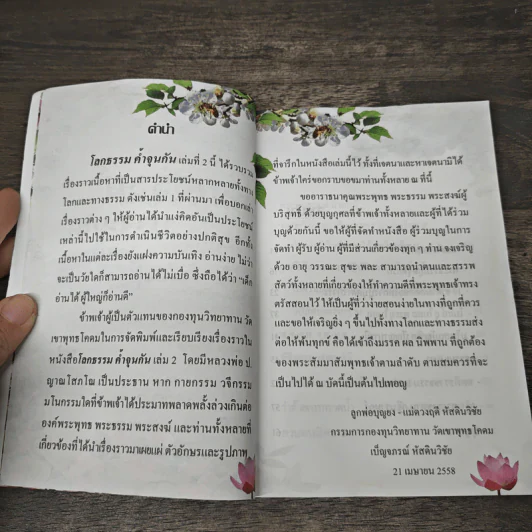 คำนำ
โลกธรรม ค้ำจุนกัน เล่มที่ 2 นี้ ได้รวบรวม
เรื่องราวเนื้อหาที่เป็นสารประโยชน์หลากหลายทั้งทาง
โลกและทางธรรม ดังเช่นเล่ม 1 ที่ผ่านมา เพื่อบอกเล่า
เรื่องราวต่าง ๆ ให้ผู้อ่านได้นำแง่คิดอันเป็นประโยชน์
เหล่านี้ไปใช้ในการดำเนินชีวิตอย่างปกติสุข อีกทั้ง
เนื้อหาในแต่ละเรื่องยังแฝงความบันเทิง อ่านง่าย ไม่ว่า
จะเป็นวัยใดก็สามารถอ่านได้ไม่เบื่อ ซึ่งถือได้ว่า "เด็ก
อ่านได้ ผู้ใหญ่ก็อ่านดี"
ข้าพเจ้าผู้เป็นตัวแทนของกองทุนวิทยาทาน วัด
เขาพุทธโคดม ในการจัดพิมพ์และเรียบเรียงเรื่องราวใน
หนังสือโลกธรรม ค้ำจุนกัน เล่ม 2 โดยมีหลวงพ่อ ป.
ญาณโสภโณ เป็นประธาน หาก กายกรรม วจีกรรม
มโนกรรมใดที่ข้าพเจ้าได้ประมาทพลาดพลั้งล่วงเกินต่อ
องค์พระพุทธ พระธรรม พระสงฆ์ และท่านทั้งหลายที่
เกี่ยวข้องที่ได้นำเรื่องราวมาเผยแผ่ ตัวอักษรและรูปภาพ
ที่จารึกในหนังสือเล่มนี้ไว้ ทั้งที่เจตนาและหาเจตนามิได้
ข้าพเจ้าใคร่ขอกราบขอขมาท่านทั้งหลาย ณ ที่นี้
ขออาราธนาคุณพระพุทธ พระธรรม พระสงฆ์ผู้
บริสุทธิ์ ด้วยบุญกุศลที่ข้าพเจ้าทั้งหลายและผู้ที่ได้ร่วม
บุญด้วยกันนี้ ขอให้ผู้ที่จัดทำหนังสือ ผู้ร่วมบุญในการ
จัดทำ ผู้รับ ผู้อ่าน ผู้ที่มีส่วนเกี่ยวข้องทุก ๆ ท่าน จงเจริญ
ด้วย อายุ วรรณะ สุขะ พละ สามารถนำตนและสรรพ
สัตว์ทั้งหลายที่เกี่ยวข้องให้ทำความดีที่พระพุทธเจ้าทรง
ตรัสสอนไว้ ให้เป็นผู้ที่ว่าง่ายสอนง่ายในทางที่ถูกที่ควร
และขอให้เจริญยิ่ง ๆ ขึ้นไปทั้งทางโลกและทางธรรมส่ง
ต่อให้พ้นทุกข์ คือได้เข้าถึงมรรค ผล นิพพาน ที่ถูกต้อง
ของพระสัมมาสัมพุทธเจ้าตามลำดับ ตามสมควรที่จะ
เป็นไปได้ ณ บัดนี้เป็นต้นไปเทอญ
ลูกพ่อบุญยง - แม่ดวงฤดี หัสดินวิชัย
กรรมการกองทุนวิทยาทาน วัดเขาพุทธโคดม
เบ็ญจภรณ์ หัสดินวิชัย
21 เมษายน 2558